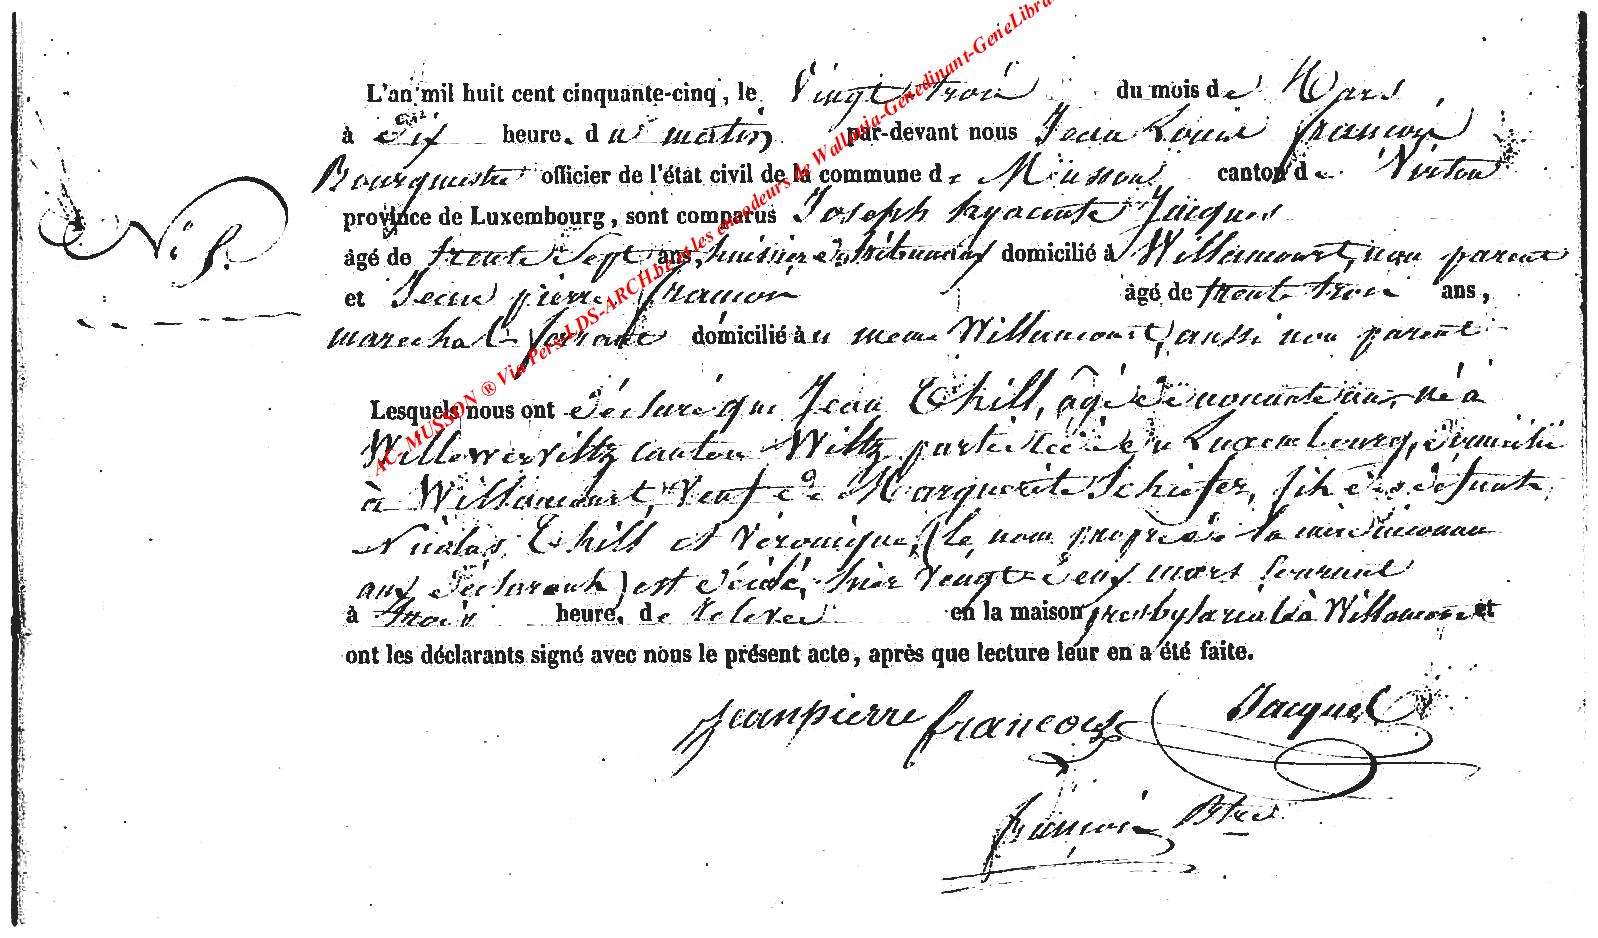 L'an mil huit cent cinquante-cinq, le Vingt trois du mois de Mars
à dix heure. du matin par-devant nous Jean Louis françois
Bourguestre officier de l'état civil de la commune de Musson canton de Virton
N° 5. province de Luxembourg, sont comparus Joseph hyacinte Jacques
âgé de trente Sept ans, huissier de tribunaux domicilié à Willancourt, non parent
et Jean pierre françois âgé de trente trois ans,
marechal ferrant domicilié au meme Willancourt, aussi non parent
Lesquels nous ont déclaré que Jean Thill, âgé de nonante ans, né à
Willerwiltz canton Wiltz partie cédée du Luxembourg, domicilié
à Willancourt, Veuf de Marguerite Schiefer, fils des défunts
Nicolas Thill et Véronique, (le nom propre de la mère inconnu
aux déclarants) est décédé, hier Vengt deux mars Courant
à trois heure. de relevée en la maison presbytariale à Willancourt et
ont les déclarants signé avec nous le présent acte, après que lecture leur en a été faite.
jeanpierre francois Jacques
françois Btre
AC-MUSSON ® Via Perso LDS-ARCH.be et les encodeurs de Wallonia-Genedinant-GeneLibra